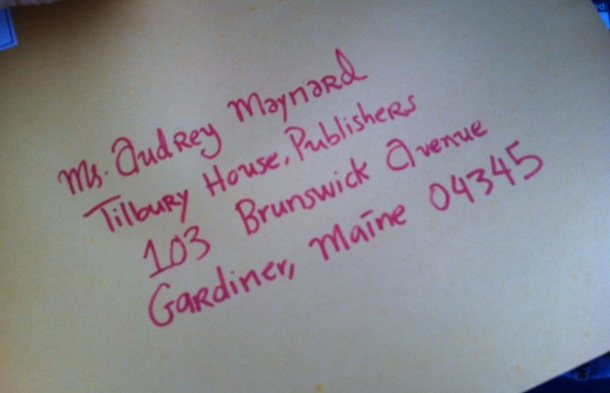 Ms. Audrey Maynard
Tilbury House, Publishers
103 Brunswick Avenue
Gardiner, Maine 04345